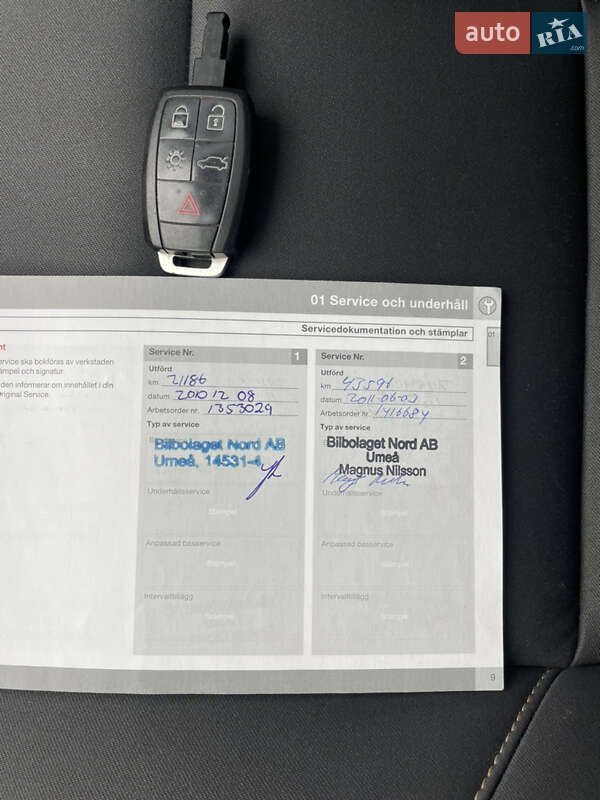 auto RIA.com
01 Service och underhåll
Servicedokumentation och stämplar
01
nt
ervice ska bokföras av verkstaden
ämpel och signatur.
den informerar om innehållet i din
Original Service.
Service Nr. 1
Utförd
km 21186
datum 2010 12 08
Arbetsorder nr 1353029
Typ av service
Bilbolaget Nord AB
Umeå, 14531-4
Underhållsservice
Stämpel
Anpassad basservice
Stämpel
Intervalltillägg
Stämpel
Service Nr. 2
Utförd
km 43596
datum 2011-06-03
Arbetsorder nr 1416684
Typ av service
Bilbolaget Nord AB
Umeå
Magnus Nilsson
Underhållsservice
Stämpel
Anpassad basservice
Stämpel
Intervalltillägg
Stämpel
9